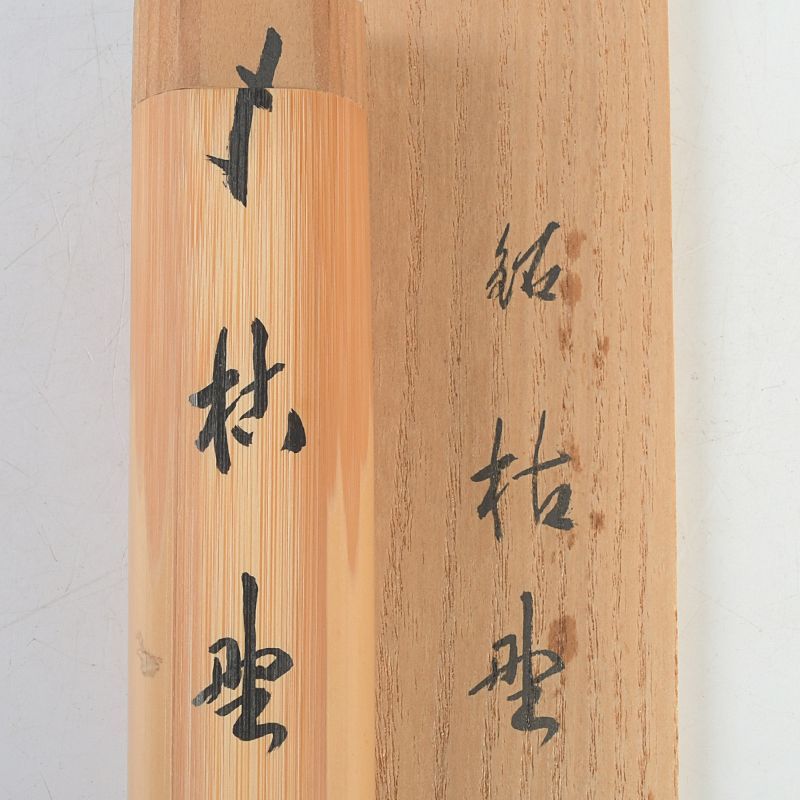 銘 枯野
枯野